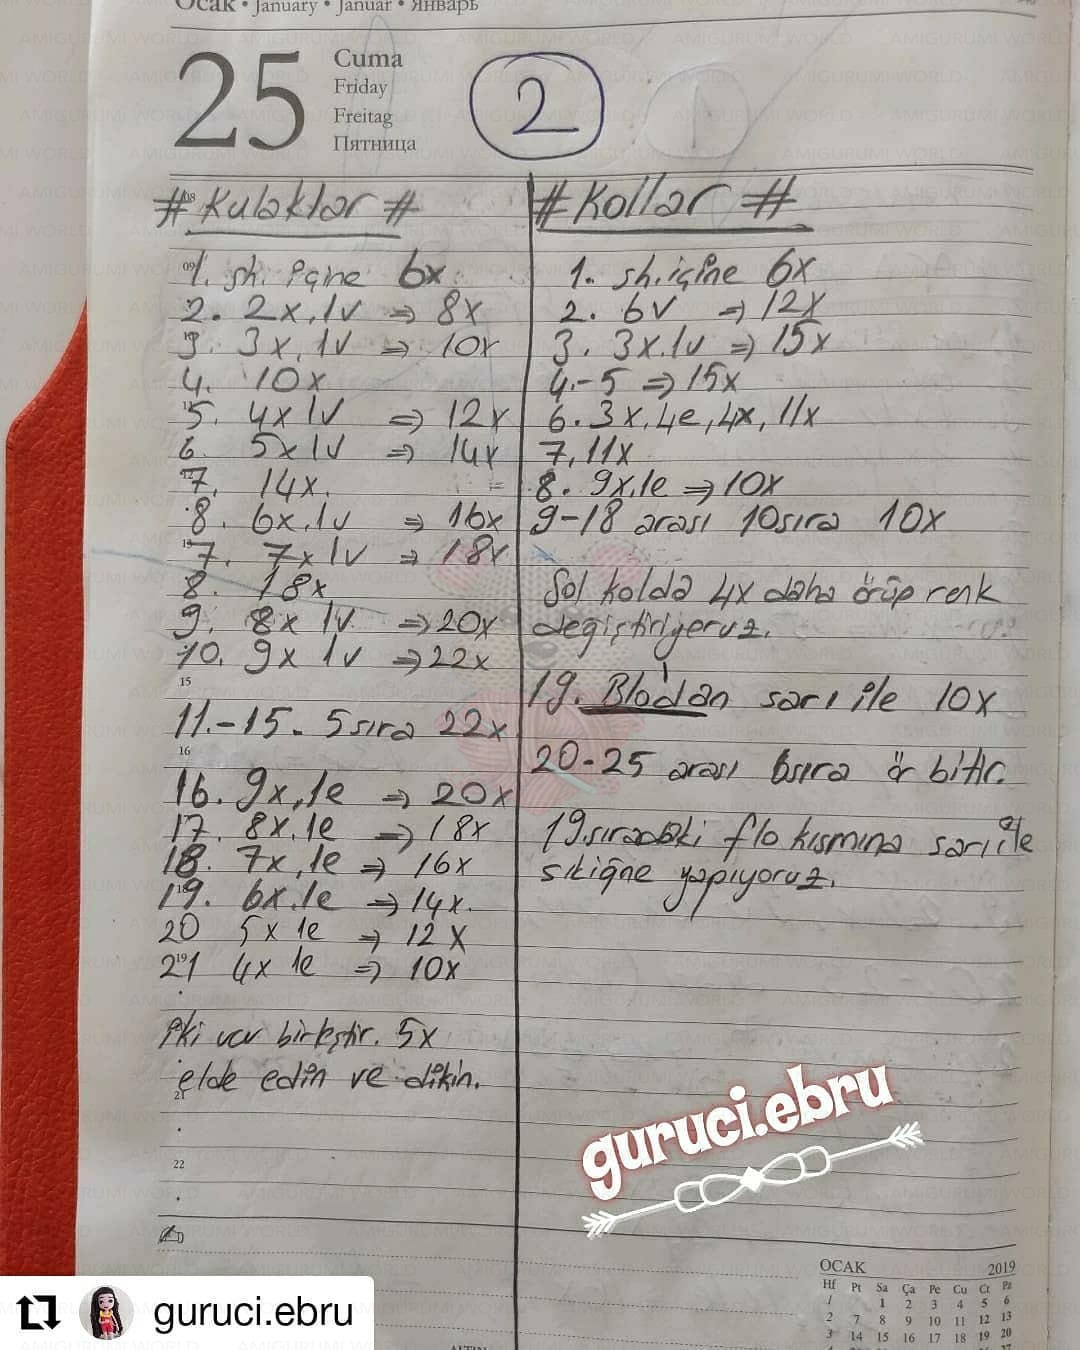 Ocak • January • Januar • Январь
25
Cuma
Friday
Freitag
Пятница
2
# Kulaklar #
1. sh. içine 6x
2. 2x, 1v => 8x
3. 3x, 1v => 10x
4. 10x
5. 4x 1v => 12x
6. 5x 1v => 14x
7. 14x.
8. 6x, 1v => 16x
7. 7x 1v => 18x
8. 18x
9. 8x 1v. => 20x
10. 9x 1v => 22x
11.-15. 5 sıra 22x
16. 9x, 1e => 20x
17. 8x, 1e => 18x
18. 7x, 1e => 16x
19. 6x, 1e => 14x.
20 5x 1e => 12x
21 4x 1e => 10x
iki var birleştir. 5x
elde edin ve dikin.
# Kollar #
1. sh. içine 6x
2. 6v => 12x
3. 3x.1v => 15x
4.-5 => 15x
6. 3x, 4e, 4x, 11x
7, 11x
8. 9x,1e => 10x
9-18 arası 10sıra 10x
Sol kolda 4x daha örüp renk
değiştiriyoruz.
19. Blodan sarı ile 10x
20-25 arası 6sıra ör bitir.
19.sıradaki flo kısmına sarı ile
sıkiğne yapıyoruz.
15
16
21
22
guruci.ebru
OCAK 2019
Hf Pt Sa Ça Pe Cu Ct Pz
1 1 2 3 4 5 6
2 7 8 9 10 11 12 13
3 14 15 16 17 18 19 20
guruci.ebru
AMIGURUMI WORLD